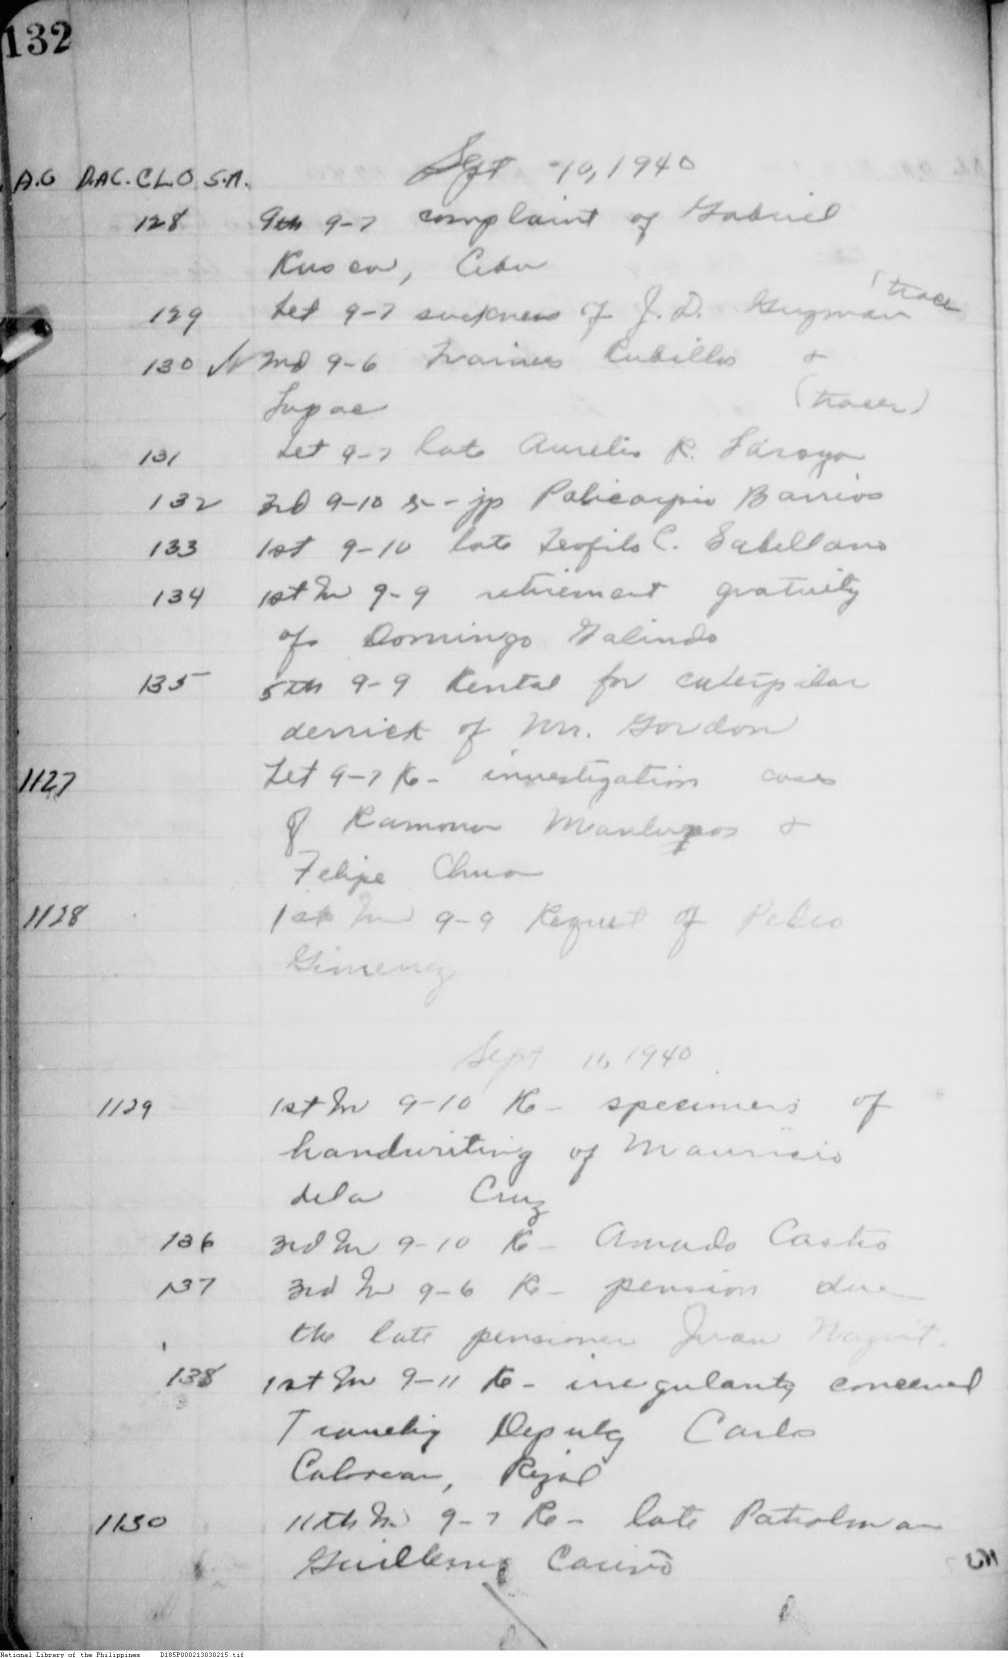 132
Sept 10, 1940
A.G D.A.C. C.L.O S.A.
128 9th 9-7 complaint of Gabriel
Cebu
129 Let 9-7 sickness of J. D. Guzman (tracer
130 Ind 9-6 Trainees Cubillo &
Lupac (tracer)
131 Let 9-7 late Aurelio R.
132 3rd 9-10 - jp Policarpio Barrios
133 1st 9-10 late Teofilo C. Sabellano
134 1st In 9-9 retirement gratuity
of Domingo Galindo
135 5th 9-9 Rental for caterpilar
derrick of Mr. Gordon
1127 Let 9-7 Re- investigation cases
of Ramona &
Felipe Chua
1128 1st Ind 9-9 Request of Pedro
Gimenez
Sept 11, 1940
1129 1st In 9-10 Re- specimens of
handwriting of Mauricio
dela Cruz
136 3rd In 9-10 Re- Amado Castro
137 3rd In 9-6 Re- pension due
the late pensioner Juan
138 1st In 9-11 Re- irregularity concerned
Deputy Carlos
Caloocan, Rizal
1130 11th In 9-7 Re- late Patrolman
Guillermo Cariño
National Library of the Philippines D185P000213030215.tif